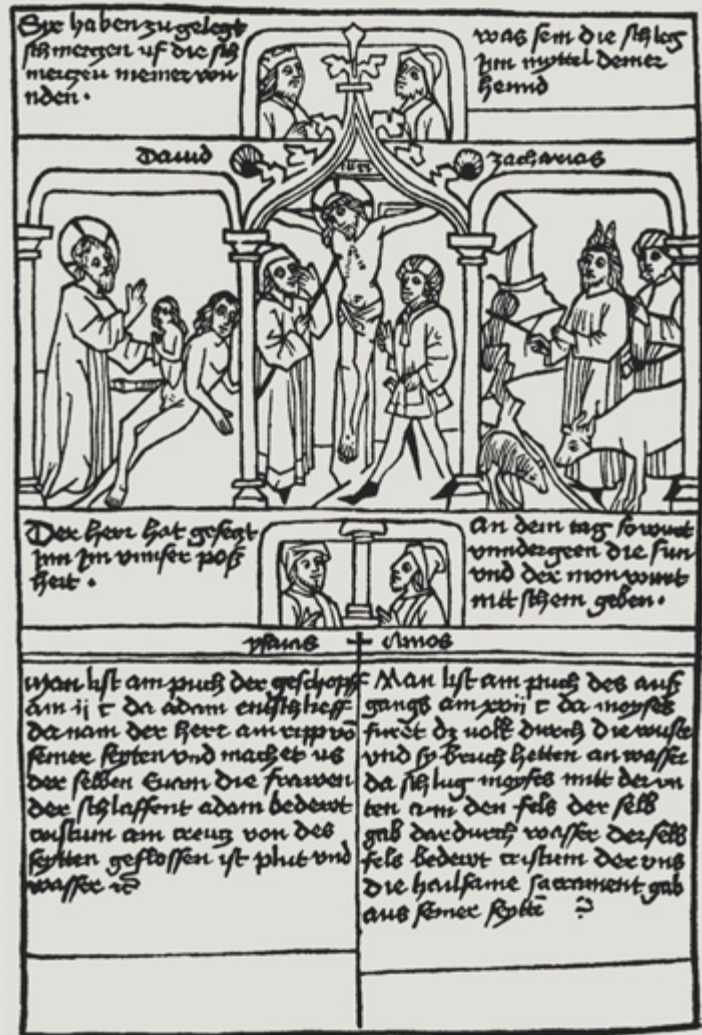 Sye haben zu gelegt
schmerzen uf die sch
merzen meiner wun
nden.
was sein die schleg
Inn myttel deiner
hennd
Dauid
zacharias
Der herr hat gesetzt
Inn Im vnnser poß
heit.
An dem tag so wirt
vnndergeen die sun
vnd der mon wirt
nitt schein geben.
ysaias
Amos
Man list am puch der geschopff
am ij c da adam entschlieff
da nam der herr ain ripp vō
seiner seyten vnd machet us
der selben Euam die frawen
der schlaffent adam bedewt
cristum am creutz von des
seytten geflossen ist plut vnd
wasser
Man list am puch des auß
gangs am xvij c da moyses
furet dz volk durch die wuste
vnd sy bruch hetten an wasser
da schlug moyses mitt der ru
ten an den fels der selb
gab dardurch wasser der selb
fels bedewt cristum der vns
die hailsame sacrament gab
aus seiner seyttē